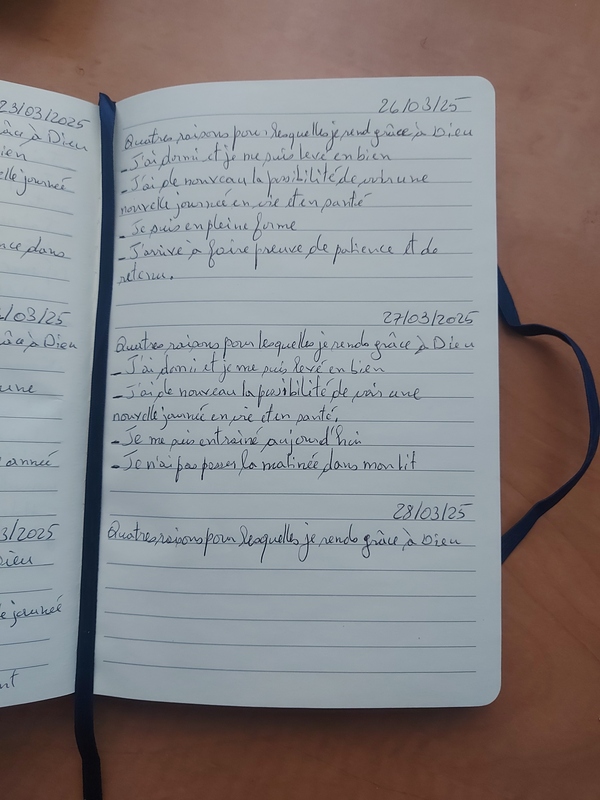 23/03/2025
âce à Dieu
ien
elle journée
nce dans
/03/25
âce à Dieu
une
année
3/2025
Dieu
e journée
nt
26/03/25
Quatres raisons pour lesquelles je rend grâce à Dieu
- J'ai dormi et je me suis levé en bien
- J'ai de nouveau la possibilité de voir une
nouvelle journée en vie et en santé
- Je suis en pleine forme
- J'arrive à faire preuve de patience et de
retenu.
27/03/2025
Quatres raisons pour lesquelles je rends grâce à Dieu
- J'ai dormi et je me suis levé en bien
- J'ai de nouveau la possibilité de voir une
nouvelle journée en vie et en santé.
- Je me suis entrainé aujourd'hui
- Je n'ai pas passer la matinée dans mon lit
28/03/25
Quatres raisons pour lesquelles je rends grâce à Dieu